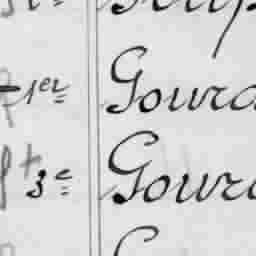 1er Goura
3e Goura